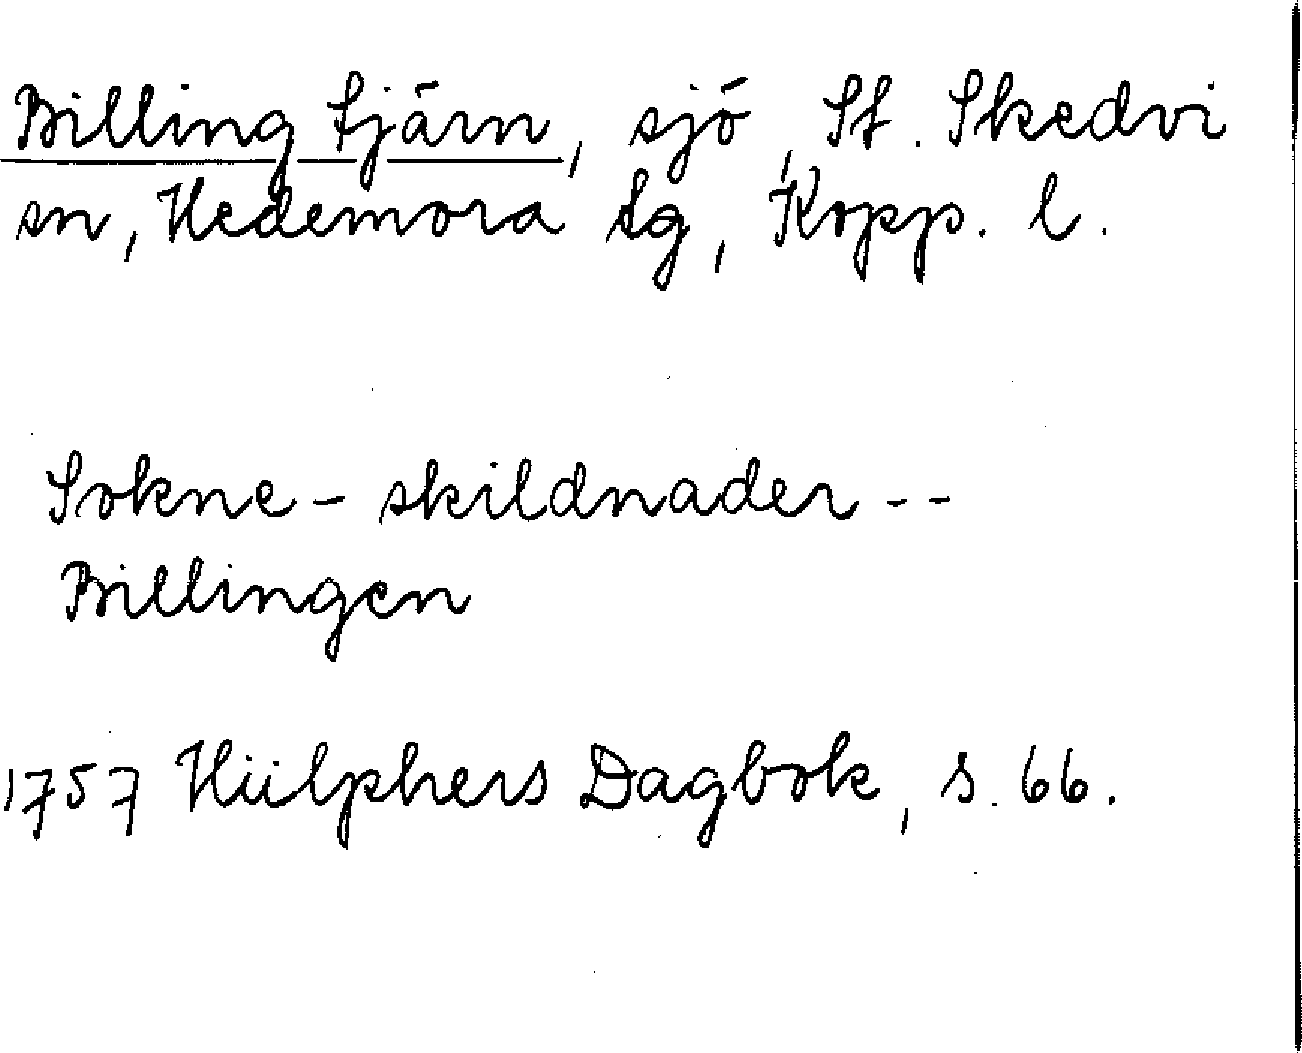 Billingtjärn, sjö, St. Skedvi
sn, Hedemora tg, Kopp. l.
Sokne- skildnader --
Billingen
1757 Hülphers Dagbok, s. 66.